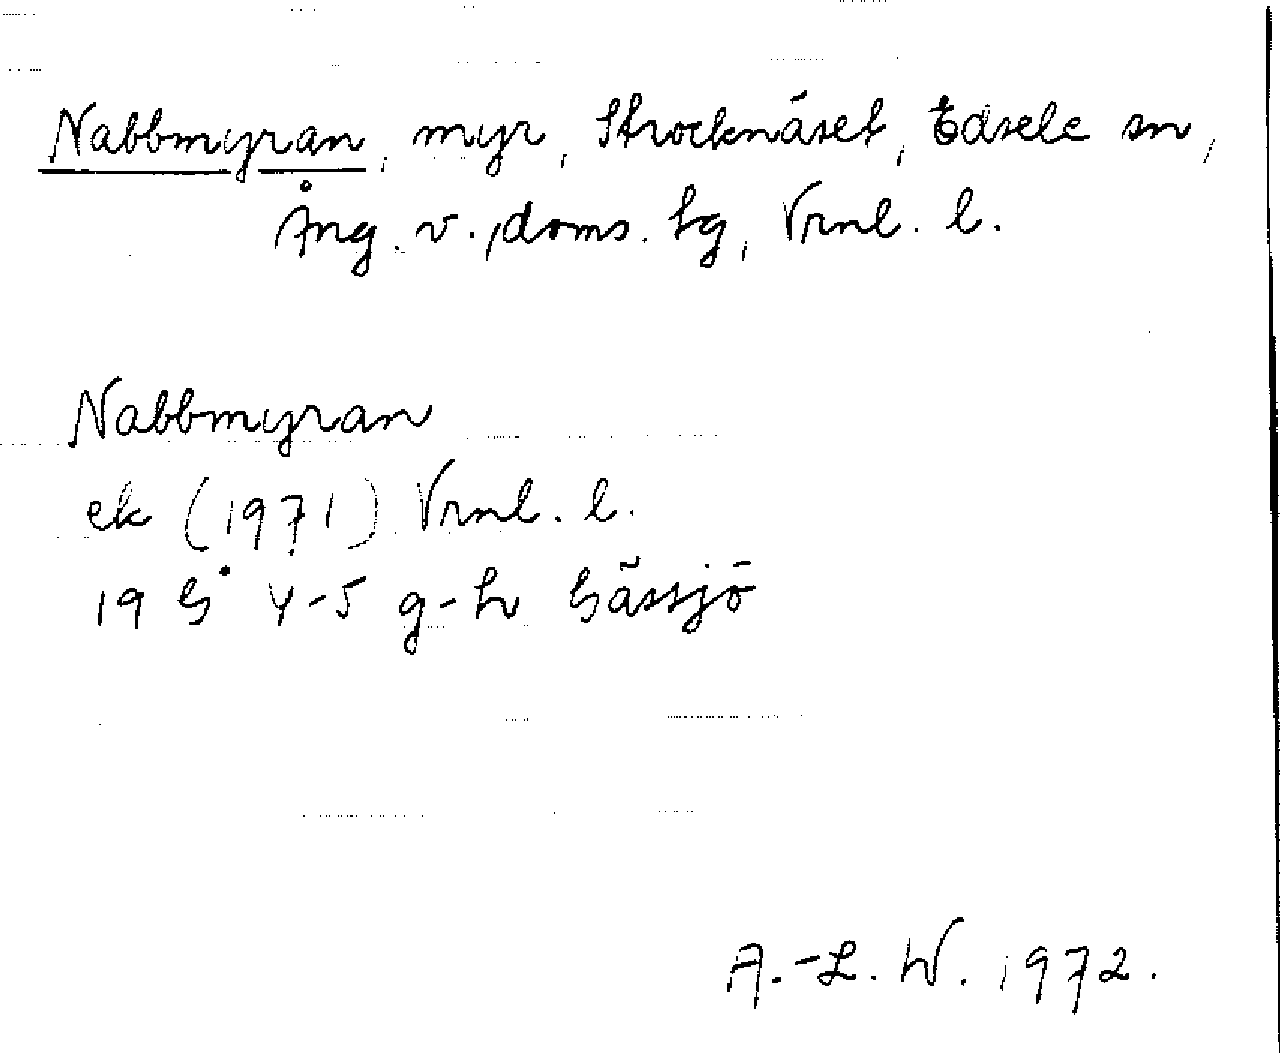 Nabbmyran, myr, Strocknäset, Edsele sn,
Ång. v., doms. hg, Vrnl. l.
Nabbmyran
ek (1971) Vrnl. l.
19 G 4-5 g-h Gässjö
A.-L. W. 1972.